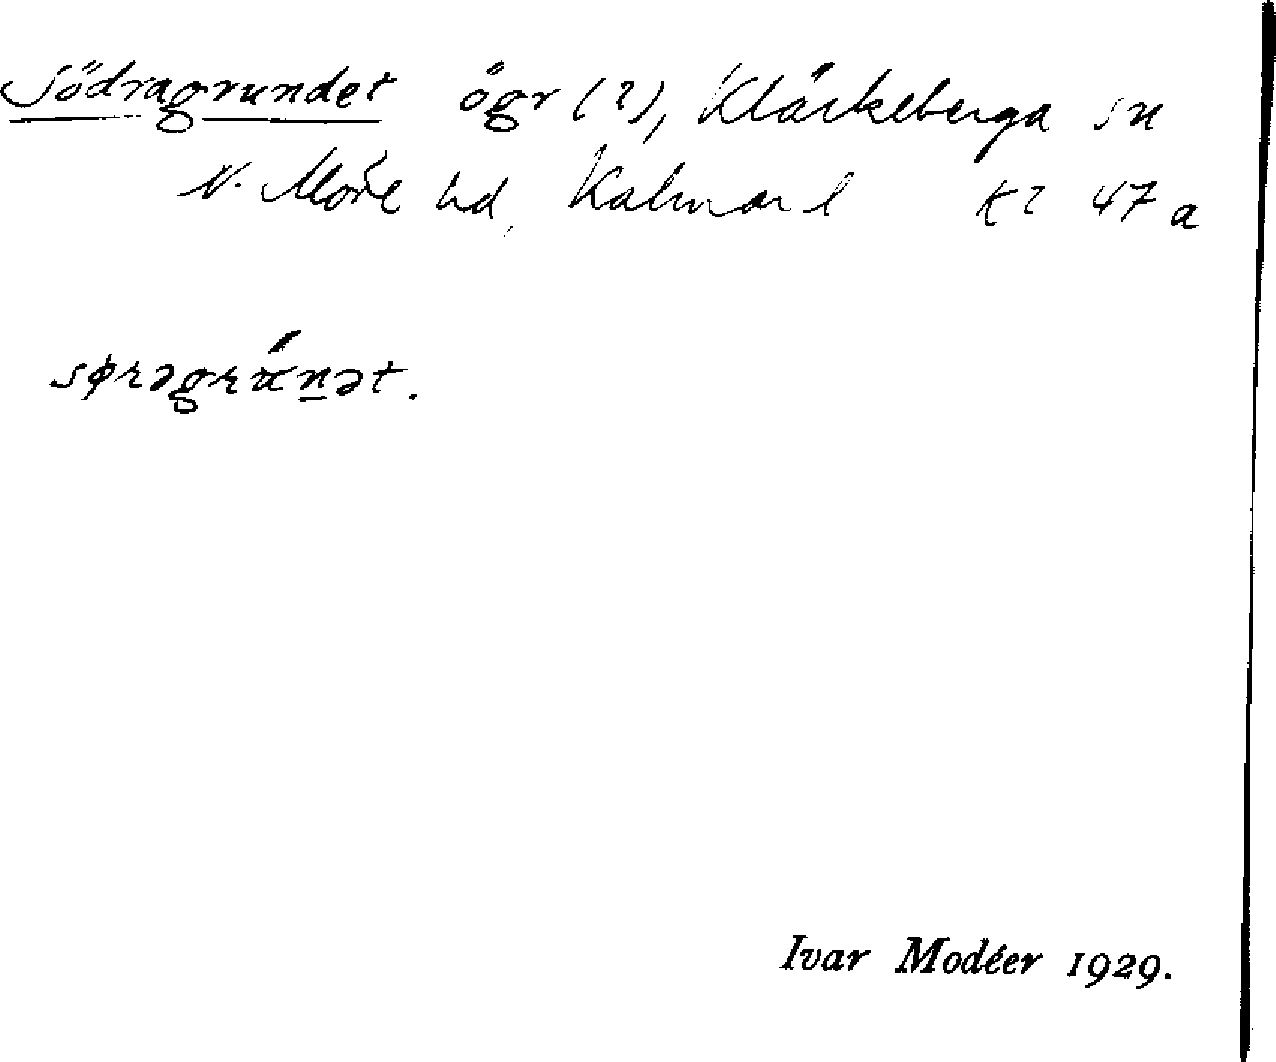 Södragrundet ögr (?), Kläckeberga sn
N. Möre hd, Kalmar l K? 47 a
søregrunət.
Ivar Modéer 1929.